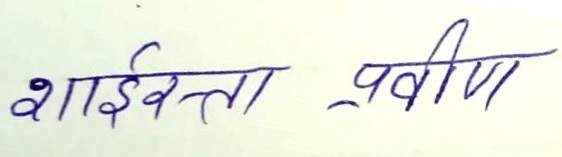 शाईस्ता प्रवीण